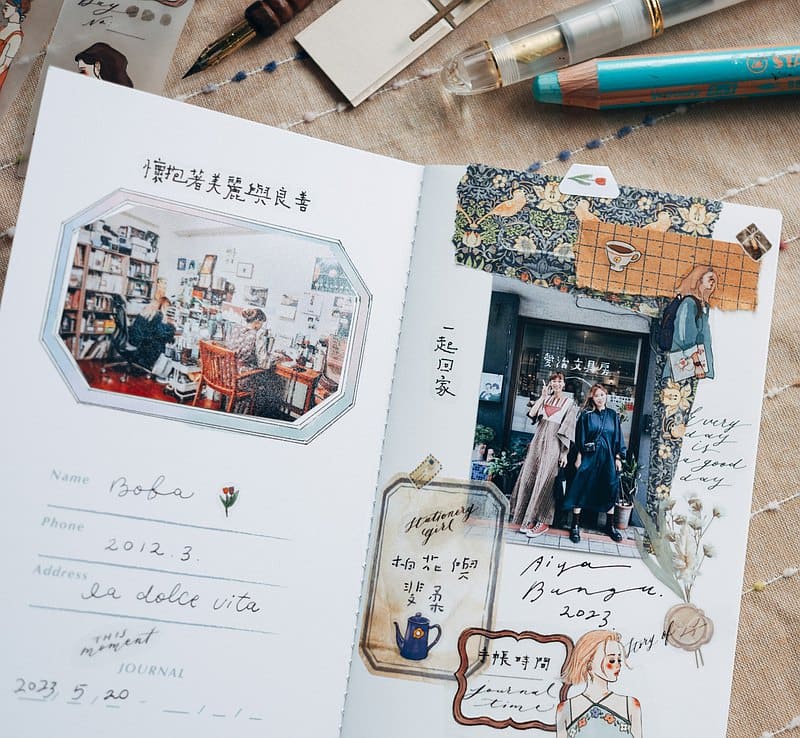 No.
懷抱著美麗與良善
Name Boba
Phone 2012.3.
Address la dolce vita
THIS
moment
JOURNAL
2023, 5, 20
一起回家
愛治文具房
Every
day
is
a good
day
Stationery
girl
Aiya
Bungu.
2023.
手帳時間
journal
time
Story of